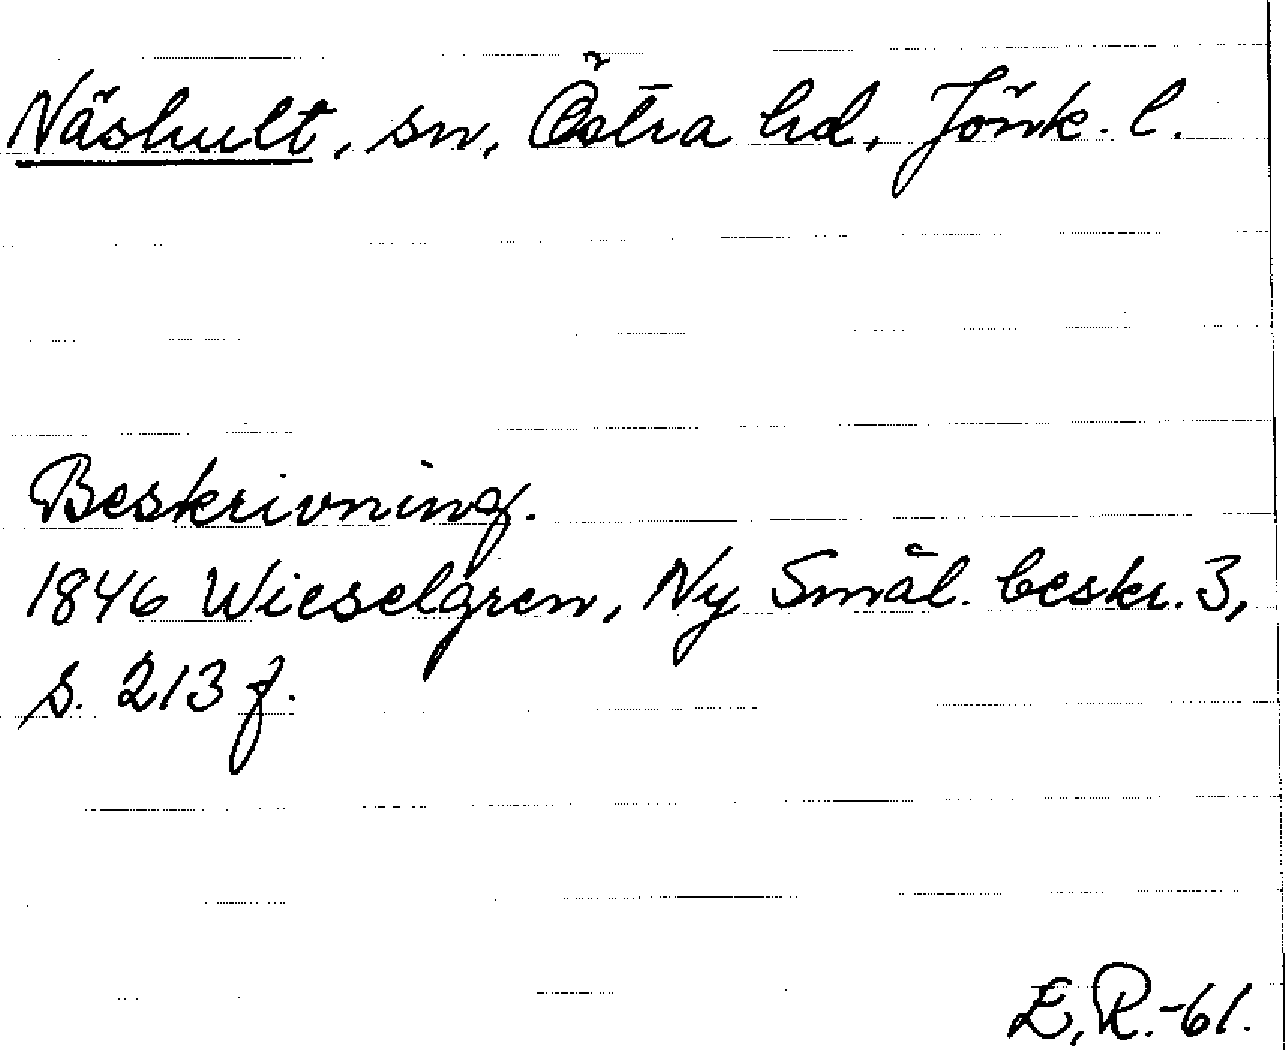 Näshult, sn, Östra hd, Jönk. l.
Beskrivning.
1846 Wieselgren, Ny Smål. beskr. 3,
s. 213 f.
E.R.-61.